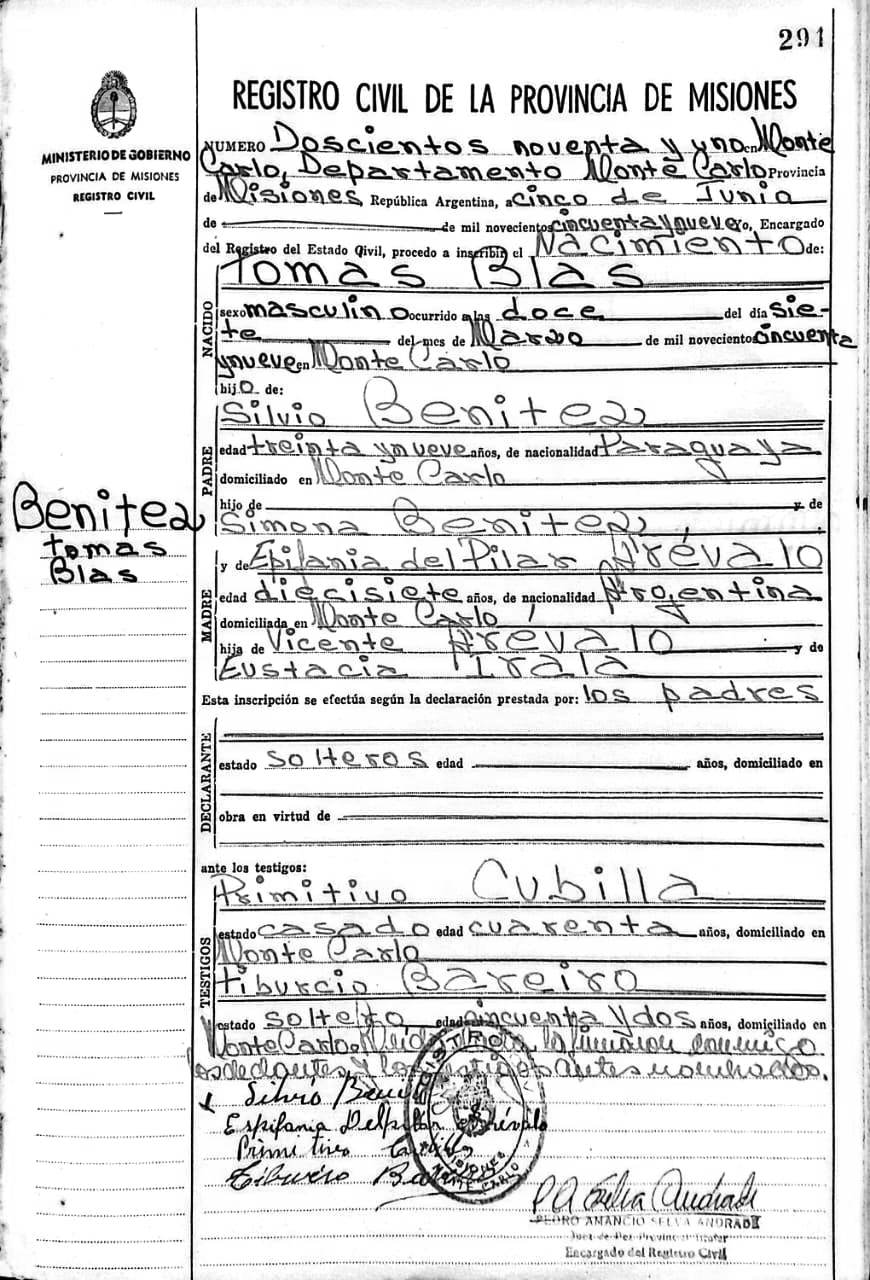 291
REGISTRO CIVIL DE LA PROVINCIA DE MISIONES
MINISTERIO DE GOBIERNO
PROVINCIA DE MISIONES
REGISTRO CIVIL
NUMERO Doscientos noventa y uno en Monte
Carlo, Departamento Monte Carlo Provincia
de Misiones, República Argentina, a cinco de Junio
de mil novecientos cincuenta y nueve yo, Encargado
del Registro del Estado Civil, procedo a inscribir el Nacimiento de:
NACIDO
Tomas Blas
sexo masculino ocurrido a las doce del día sie-
te del mes de Marzo de mil novecientos cincuenta
y nueve en Monte Carlo
hijo de:
PADRE
Silvio Benitez
edad treinta y nueve años, de nacionalidad Paraguaya
domiciliado en Monte Carlo
hijo de y de
Simona Benitez
Benitez
tomas
Blas
MADRE
y de Epifania del Pilar Arévalo
edad diecisiete años, de nacionalidad Argentina
domiciliada en Monte Carlo
hija de Vicente Arevalo y de
Eustacia Irala
Esta inscripción se efectúa según la declaración prestada por: los padres
DECLARANTE
estado solteros edad años, domiciliado en
obra en virtud de
ante los testigos:
TESTIGOS
Primitivo Cubilla
estado casado edad cuarenta años, domiciliado en
Monte Carlo
tiburcio Bareiro
estado soltero edad cincuenta y dos años, domiciliado en
Monte Carlo. Leída el acta la firmaron conmigo
los declantes y los testigos antes nombrados.
Silvio
Espifania Delpilar Arévalo
Primitivo
Tiburcio
REGISTRO
MISIONES
MONTE CARLO
P A Selva Andrade
PEDRO AMANCIO SELVA ANDRADE
Juez de Paz Provinc Titular
Encargado del Registro Civil